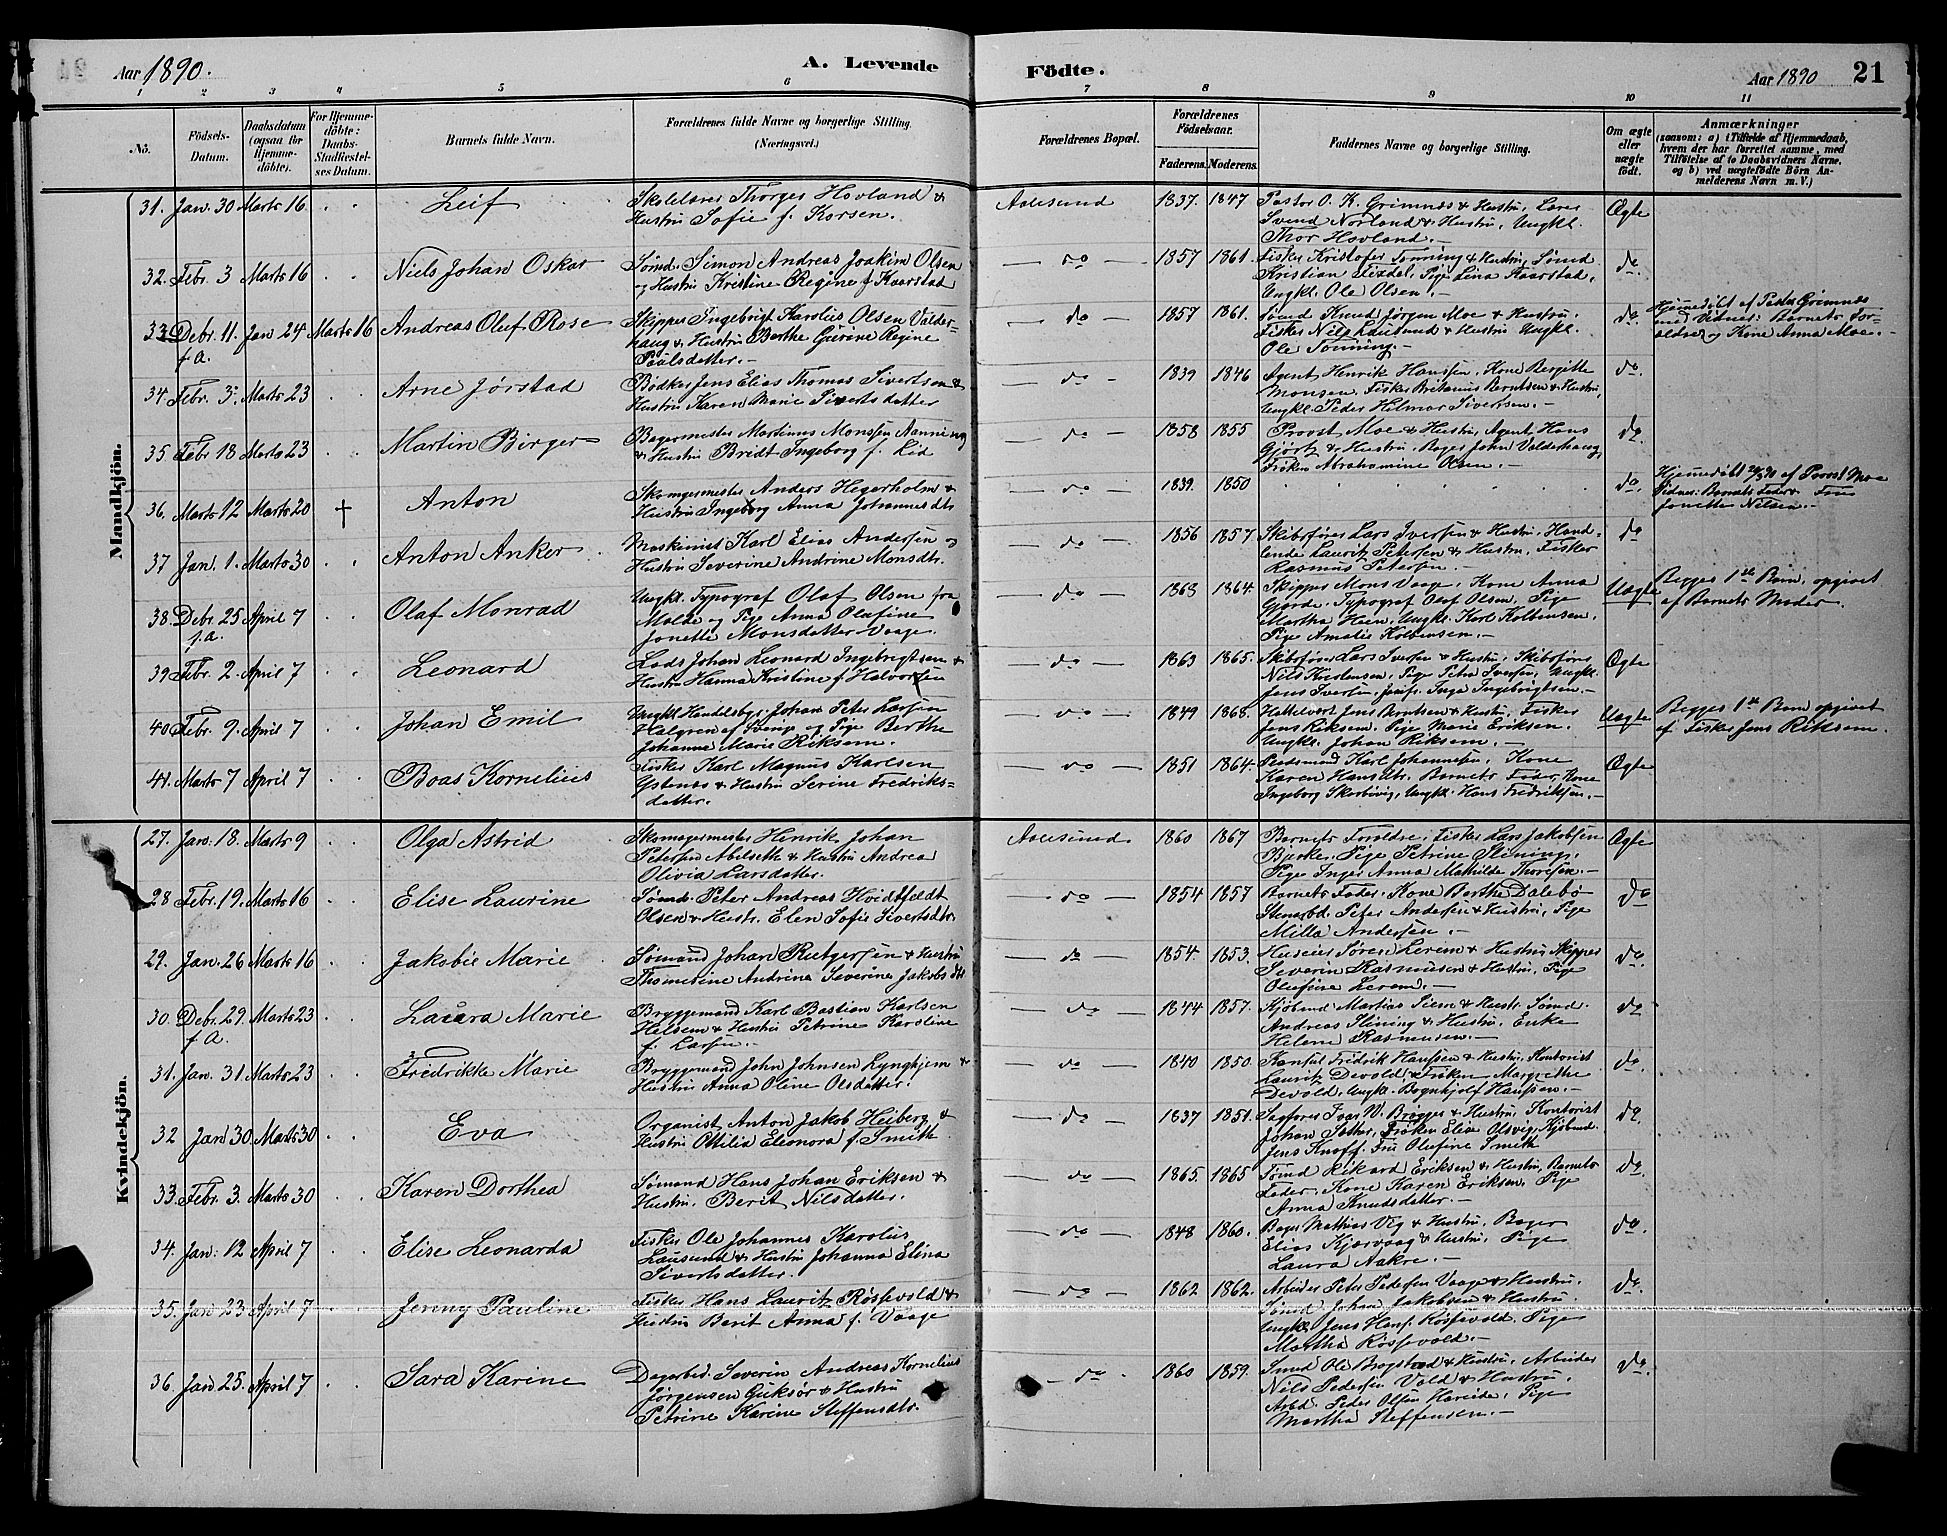 Aar 1890. A. Levende Födte. Aar 1890 21
1 2 3 4 5 6 7 8 9 10 11
No.
Födsels-
Datum.
Daabsdatum
(ogsaa for
Hjemme-
döbte).
For Hjemme-
döbte:
Daabs-
Stadfæstel-
ses Datum.
Barnets fulde Navn.
Forældrenes fulde Navne og borgerlige Stilling.
(Næringsvei.)
Forældrenes Bopæl.
Forældrenes
Födselsaar.
Faderens. Moderens.
Faddernes Navne og borgerlige Stilling.
Om ægte
eller
uægte
födt.
Anmærkninger
(saasom: a) i Tilfælde af Hjemmedaab,
hvem der har forrettet samme, med
Tilföielse af to Daabsvidners Navne,
og b) ved uægtefödte Börn An-
melderens Navn m. V.)
Mandkjön.
31. Jan. 30 Marts 16 Leif
Skolelærer Thorges Hovland &
Hustru Sofie f. Korsen.
Aalesund 1837. 1847
Pastor O. K. Grimnæs & Hustru, Lærer
Svend Norland & Hustru, Ungkl.
Thor Hovland.
Ægte
32. Febr. 3 Marts 16 Niels Johan Oskar
Sömd. Simon Andreas Joakim Olsen
og Hustru Kristine Regine f. Kaarstad
do 1857 1861.
Fisker Kristofer Tönning & Hustru, Sömd
Kristian Eizdal, Pige Lina Kaarstad,
Ungkl. Ole Olsen.
do
33. Debr. 11. Jan 24 Marts 16 Andreas Oluf Rose
f.a.
Skipper Ingebrigt Karolius Olsen Valder-
haug & Hustru Berthe Gurine Regine
Paulsdatter.
do 1857 1861.
Sömd Knud Jörgen Moe & Hustru.
Fisker Nils Lausund & Hustru Ungkl.
Ole Tönning.
do
Hjemmedöbt af Pastor Grimnæs
med Vidner: Barnets For-
ældre og Kone Anna Moe.
34. Febr. 5. Marts 23 Arne Jørstad
Bödker Jens Elias Thomas Sivertsen &
Hustru Karen Marie Sivertsdatter
do 1839 1846
Agent Henrik Hanssen, Kone Bergitte
Monsen, Fisker Britanius Berntsen & Hustru,
Ungkl. Peder Hilmar Sivertsen.
do
35. Febr 18 Marts 23 Martin Birger
Bagermester Martinus Monssen Nanning
& Hustru Bredt Ingeborg f. Lid
do 1858 1855
Provst Moe & Hustru, Agent Hans
Gjörtz & Hustru, Bager John Valderhaug,
Fröken Abrahamine Olsen.
do
36. Marts 12 Marts 20 † Anton
Skomagermester Anders Hegerholm &
Hustru Ingeborg Anna Johannesdtr
do 1839. 1850
do
Hjemmedöbt 20/3 90 af Provst Moe
Vidner: Barnets Fader & Fru
Jonette Nilsen.
37 Jan. 1. Marts 30 Anton Anker
Maskinist Karl Elias Andersen og
Hustru Severine Andrine Monsdtr.
do 1856 1857.
Skibsförer Lars Iversen & Hustru, Hand-
lende Lauritz Petersen & Hustru, Fisker
Rasmus Petersen.
do
38. Debr. 25 April 7 Olaf Monrad
f.a.
Ungkl. Typograf Olaf Olsen fra
Molde og Pige Anna Olafine
Jonette Monsdatter Vaage.
do 1868 1864.
Skipper Mons Vaage, Kone Anna
Gjerde. Typograf Olaf Olsen, Pige
Martha Hein, Ungkl. Karl Kolbensen,
Pige Amalie Kolbensen.
Uægte
Begges 1ste Barn, opgivet
af Barnets Moder.
39 Febr. 2. April 7 Leonard
Lods Johan Leonard Ingebrigtsen &
Hustru Hanna Kristine f. Halvorsen
do 1863 1865.
Skibsförer Lars Iversen & Hustru, Skibsförer
Nils Knudsen, Pige Petra Iversen, Ungkl.
Jens Iversen, Jomf. Inga Ingebrigtsen.
Ægte
40 Febr. 9. April 7 Johan Emil
Ungkl. Handelsbgt. Johan Peter Larsen
Halgren af Sverige og Pige Berthe
Johanne Marie Riksem.
do 1849 1868.
Hattelvort Jens Berntsen & Hustru, Fisker
Jens Riksem. Pige Marie Eriksen.
Ungkl. Johan Riksem.
Uægte
Begges 1ste Barn opgivet
af Fisker Jens Riksem.
41. Marts 7 April 7 Boas Kornelius
Fisker Karl Magnus Karlsen
Ystenes & Hustru Serine Fredriks-
datter.
do 1851 1864.
Karl Johannesen, Kone
Karen Hansdtr. Barnets Fader, Kone
Ingeborg Skorbövig, Ungkl. Hans Fredriksen.
Ægte
Kvindekjön.
27. Jan. 18. Marts 9 Olga Astrid
Skomagermester Henrik Johan
Petersen Abelseth & Hustru Andrea
Olivia Larsdatter.
Aalesund 1860 1867
Barnets Forældre, Fisker Lars Jakobsen
Bjerke, Pige Petrine Slining,
Pige Inger Anna Mathilde Thoresen.
Ægte
28 Febr. 19. Marts 16 Elise Laurine
Sömd. Peter Andreas Hvidtfeldt
Olsen & Hustr. Elen Sofie Sivertsdtr.
do 1854 1857
Barnets Fader. Kone Berthe Dalebö
Stenarbd. Peter Andersen & Hustru, Pige
Milla Andersen.
do
29. Jan. 26 Marts 16 Jakobie Marie
Sömand Johan Rutgersen & Hustru
Thomasine Andrine Severine Jakobsdtr
do 1854. 1853.
Huseier Sören Lerem & Hustru Skipper
Severin Rasmussen & Hustru, Pige
Olufine Lerem.
do
30. Debr. 29. Marts 23 Laura Marie
f.a.
Bryggemand Karl Bastian Karlsen
Helsem & Hustru Petrine Karoline
f. Larsen.
do 1844 1857.
Kjöbmd Martias Siem & Hustr. Sömd.
Andreas Slining & Hustru, Enke
Helene Rasmussen.
do
31. Jan. 31 Marts 23 Fredrikke Marie
Bryggemand John Johnsen Lynghjem &
Hustru Anna Oline Olsdatter.
do 1840 1850
Konsul Fredrik Hanssen & Hustru, Kontorist
Lauritz Devold & Fröken Margrethe
Devold, Ungkl. Bognhjolf Hanssen.
do.
32 Jan 30. Marts 30 Eva
Organist Anton Jakob Heiberg &
Hustru Ottilia Eleonora f. Smith
do 1837 1851.
Sagförer Ivar W. Brögger & Hustru, Kontorist
Johan Sather, Fröken Elise Olsvig, Kjöbmd.
Jens Knoff. Fru Olufine Smith
do
33. Febr. 3. Marts 30 Karen Dorthea
Sömand Hans Johan Eriksen &
Hustru. Berit Nilsdatter.
do 1865. 1865
Sömd Rikard Eriksen & Hustru, Barnets
Fader, Kone Karen Eriksen, Pige
Anna Knudsdatter.
do.
34. Jan: 12 April 7 Elise Leonarda
Fisker Ole Johannes Karolus
Lausund & Hustru Johanna Elina
Sivertsdatter.
do 1848 1860.
Bager Mathias Vig & Hustru, Bager
Elias Kjærvaag & Hustru, Pige
Laura Nakre.
do.
35. Jan 23 April 7 Jenny Pauline
Fisker Hans Lauritz Rössevold &
Hustru Berit Anna f. Vaage
do 1862 1862.
Arbeider Peter Pedersen Vaage & Hustru.
Sömd Johan Jakobsen & Hustru.
Ungkl. Jens Hans. Rössevold. Pige
Martha Rössevold.
do
36. Jan 25. April 7 Sara Karine
Dagarbd. Severin Andreas Kornelius
Jörgensen Guksör & Hustru
Petrine Karine Steffensdtr.
do 1860 1859.
Smed Ole Brogstad & Hustru, Arbeider
Nils Pedersen Vold & Hustru,
Arbd. Peder Olsen Hareide, Pige
Martha Steffensen.
do.